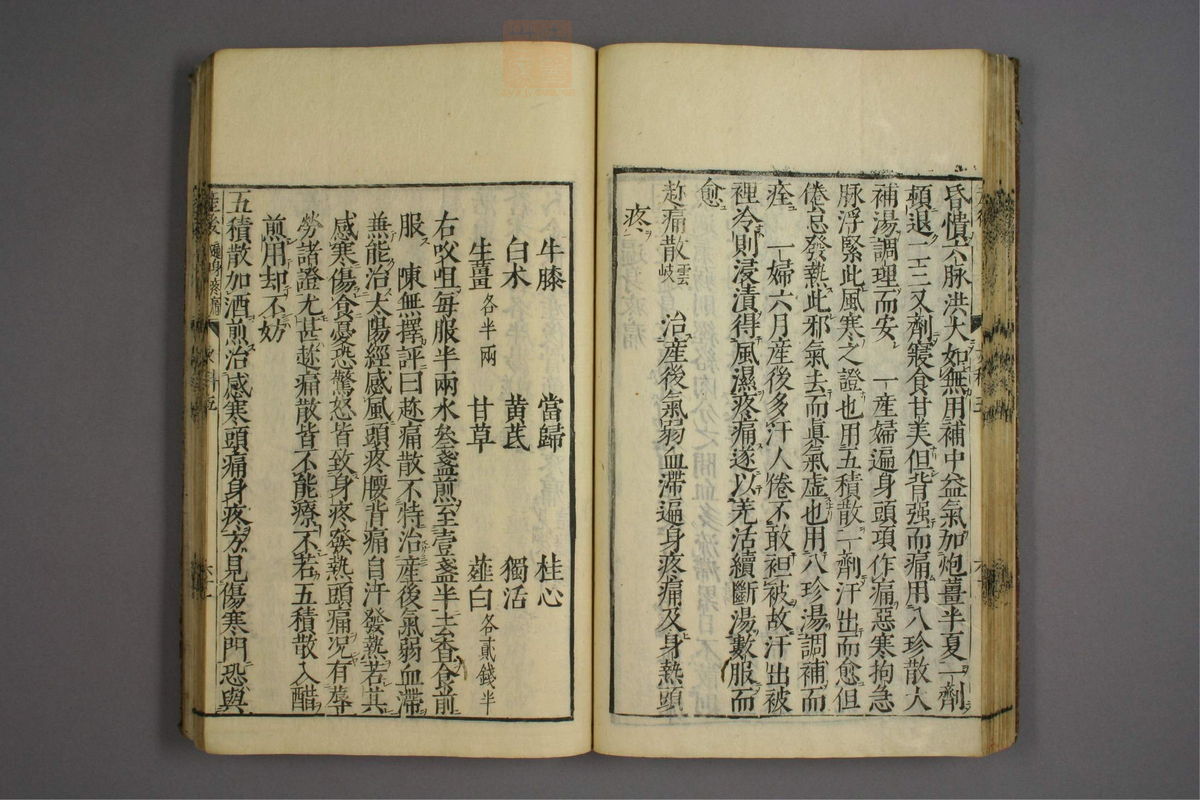 昏憒六脉洪大如無用補中益氣加炮薑半夏一劑
頓退一二三又劑寢食甘美但背强而痛用八珍散大
補湯調理而安　一産婦遍身頭項作痛惡寒拘急
脉浮緊此風寒之證也用五積散一劑汗出而愈但
倦怠發熱此邪氣去而眞氣虚也用八珍湯調補而
痊　一婦六月産後多汗人倦不敢袒被故汗出被
裡冷則浸漬得風濕疼痛遂以羌活續斷湯數服而
愈
趂痛散雲岐　治産後氣弱血滯遍身疼痛及身熱頭
疼
牛膝　當歸　桂心
白朮　黄芪　獨活
生薑各半兩　甘草　薤白各貳錢半
右㕮咀毎服半兩水叄盞煎至壹盞半去査食前
服　陳無擇評曰趂痛散不特治産後氣弱血滯
兼能治太陽經感風頭疼腰背痛自汗發熱若其
感寒傷食憂恐驚怒皆致身疼發熱頭痛况有蓐
勞諸證尤甚趂痛散皆不能療不若五積散入醋
煎用却不妨
五積散加酒煎治感寒頭痛身疼方見傷寒門恐與
産後　遍身疼痛